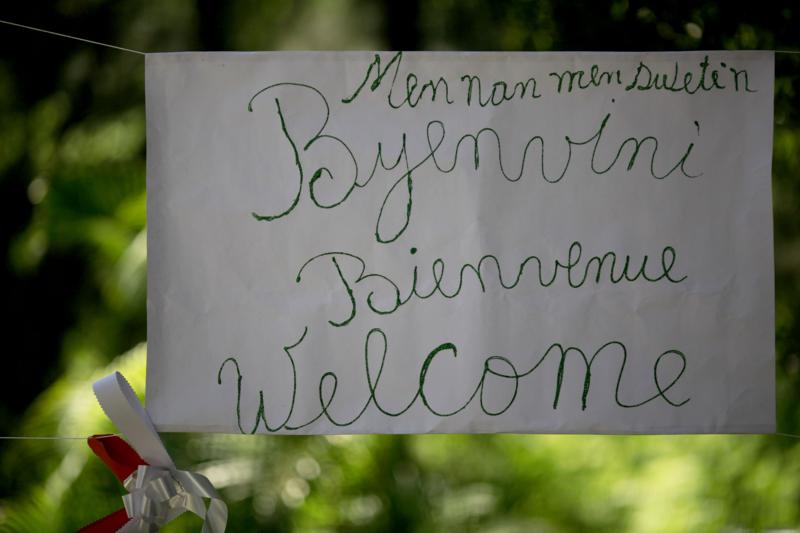 Men nan men suseten
Byenvini
Bienvenue
Welcome